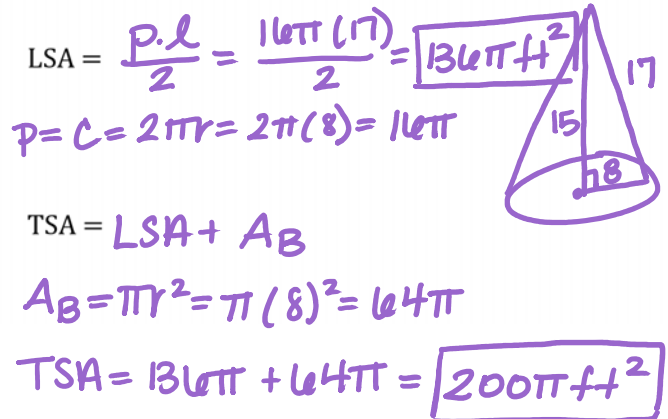 LSA = p·l/2 = 16π(17)/2 = 136π ft²
17
15
P = C = 2πr = 2π(8) = 16π
8
TSA = LSA + A_B
A_B = πr² = π(8)² = 64π
TSA = 136π + 64π = 200π ft²